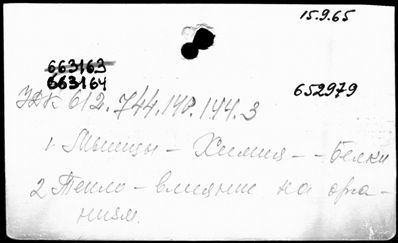 15.9.65
663163
663164
652979
УДК 612.744.14:0.144.3
1. Мышцы - Химия - - Белки
2 Тепло - влияние на орга-
низм.